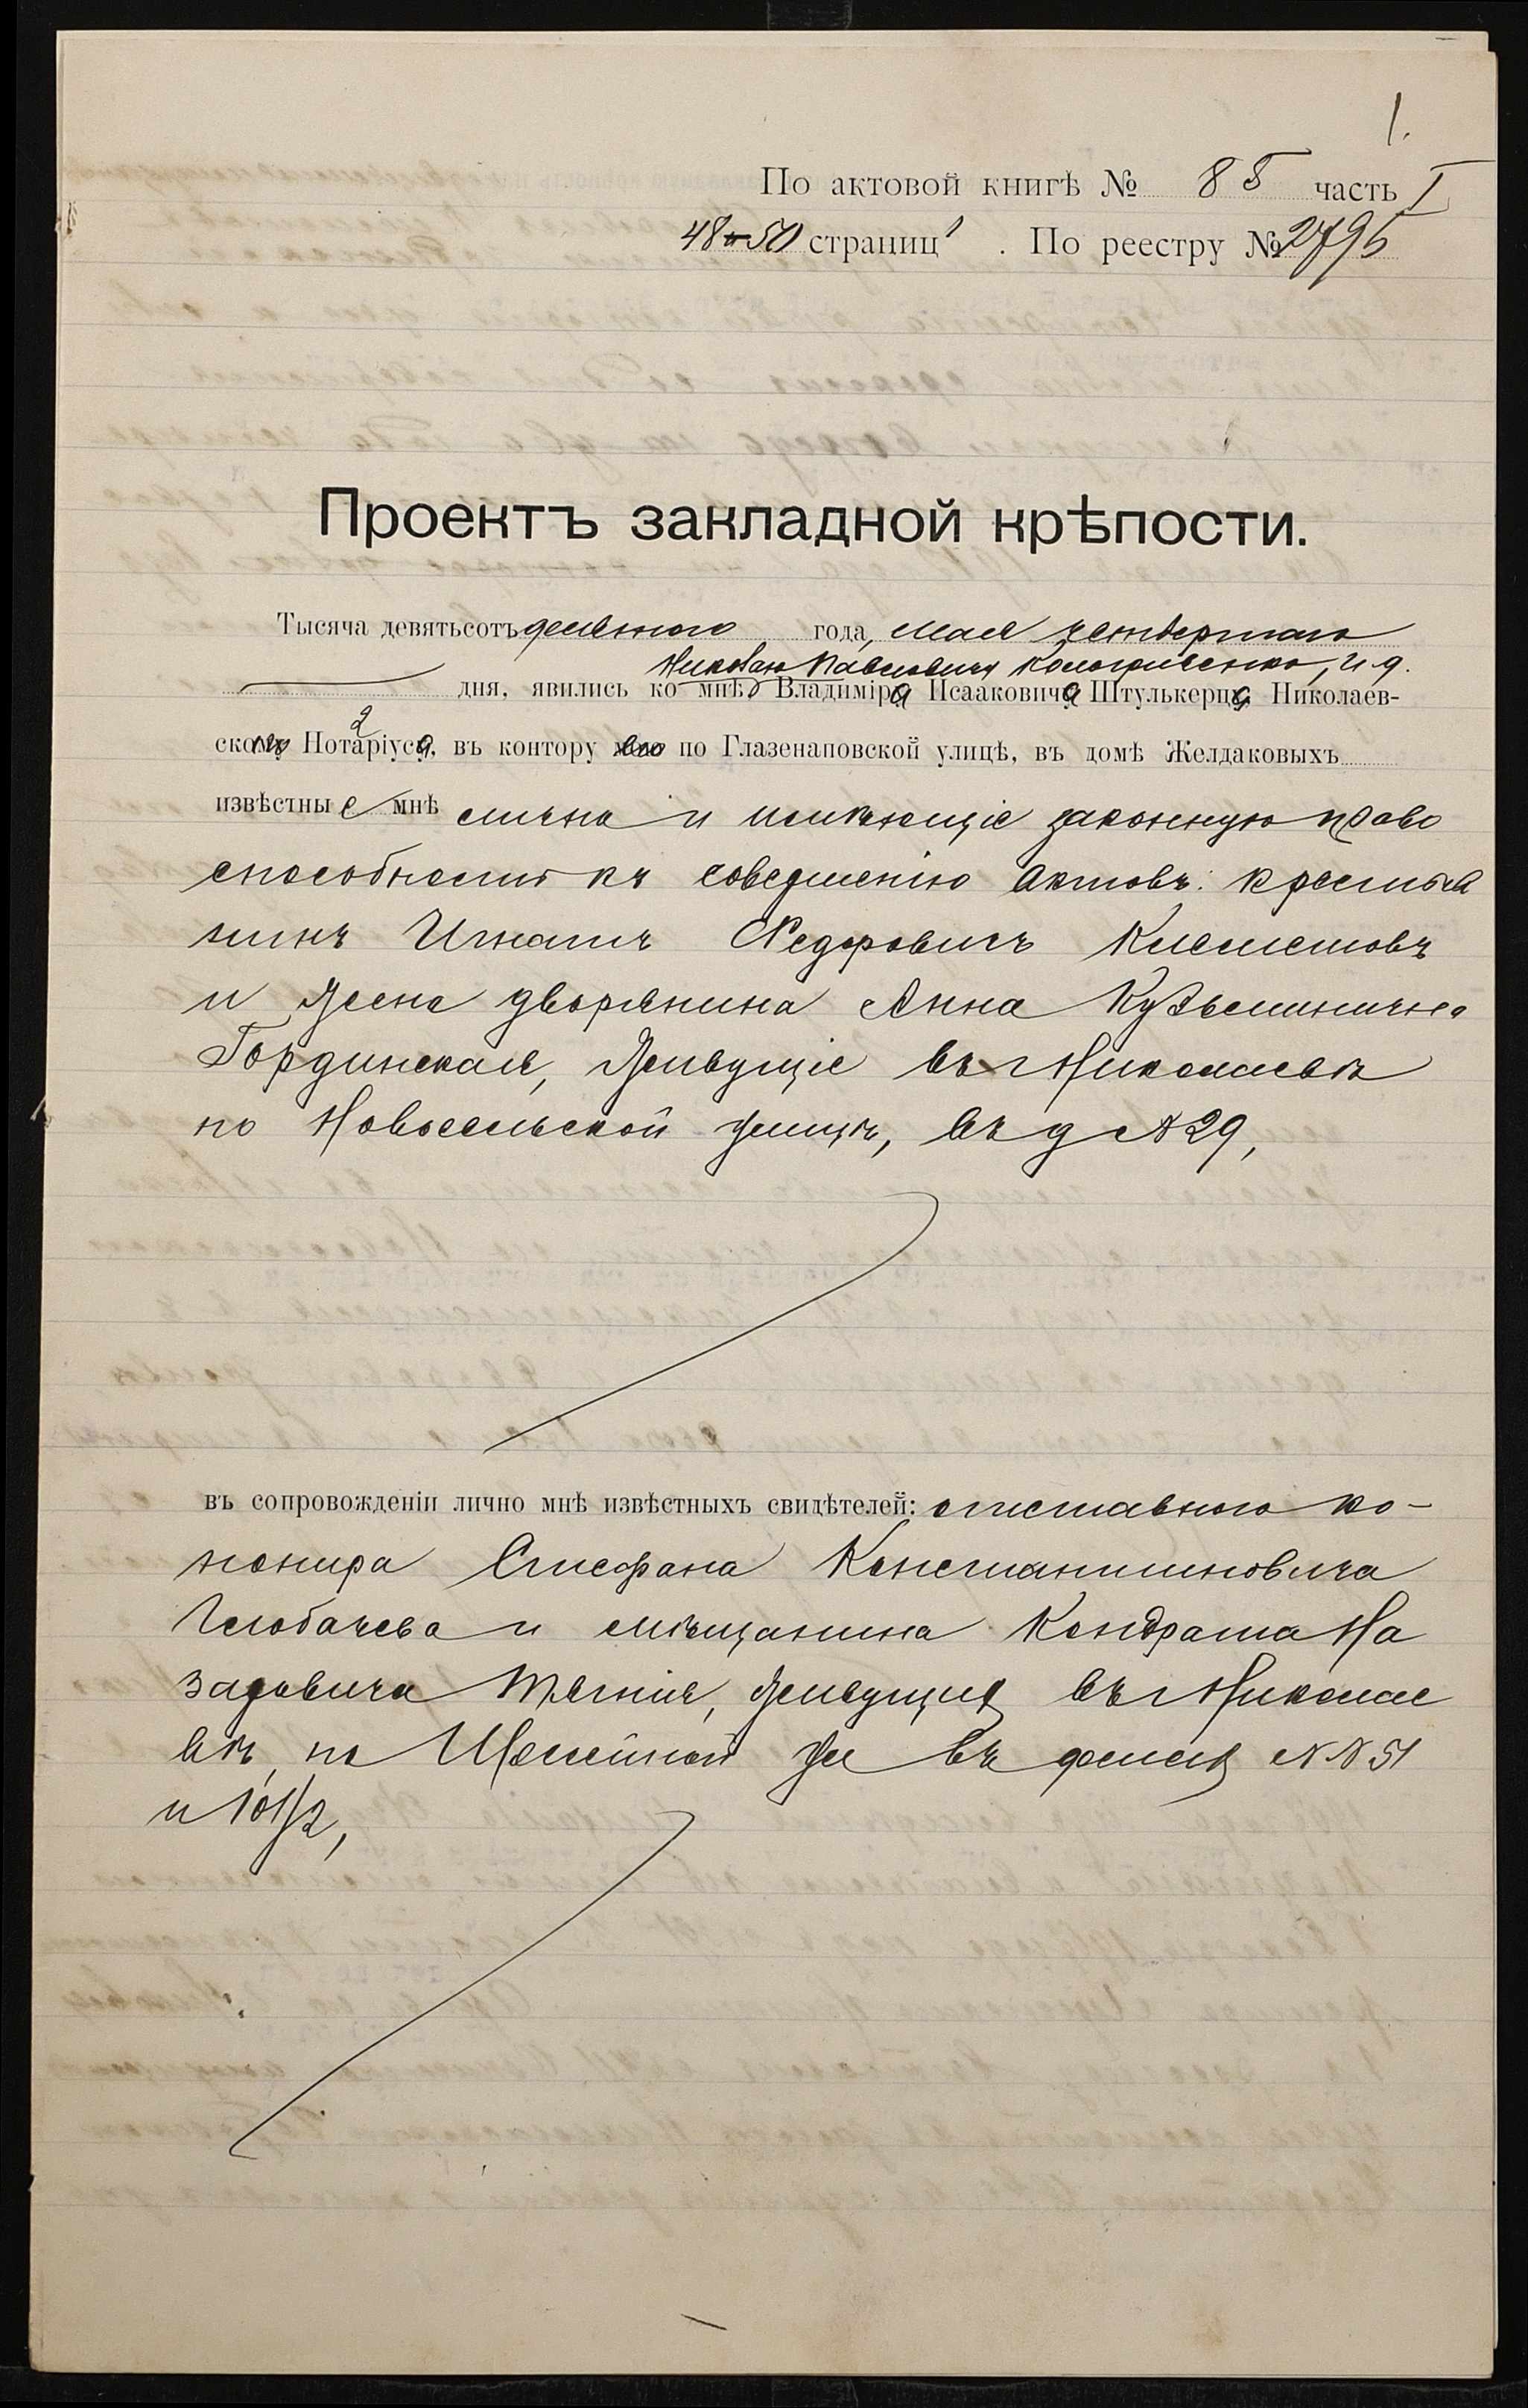 1.
По актовой книгѣ № 85 часть I
48-50 страниц . По реестру № 2795
Проектъ закладной крѣпости.
Тысяча девятьсотъ девятого года, мая четвертаго
Николаю Павловичу и. д.
дня, явились ко мнѣ Владиміра Исааковича Штулькерца Николаев-
скаго Нотаріуса, въ контору его по Глазенаповской улицѣ, въ домѣ Желдаковыхъ
извѣстные мнѣ лично и имѣющіе законную право
способность къ совершенію актовъ: крестья
нинъ Игнатъ Федоровичъ
и жена дворянина Анна Кузьминична
Гординская, живущіе въ г Николаевѣ
по Новосельской улицѣ, въ д № 29,
въ сопровожденіи лично мнѣ извѣстныхъ свидѣтелей: отставного ка-
нонира Стефана Константиновича
и мѣщанина Кондрата На
заровича живущихъ въ г Николае
вѣ, по ул въ домахъ №№ 51
и 101/2,